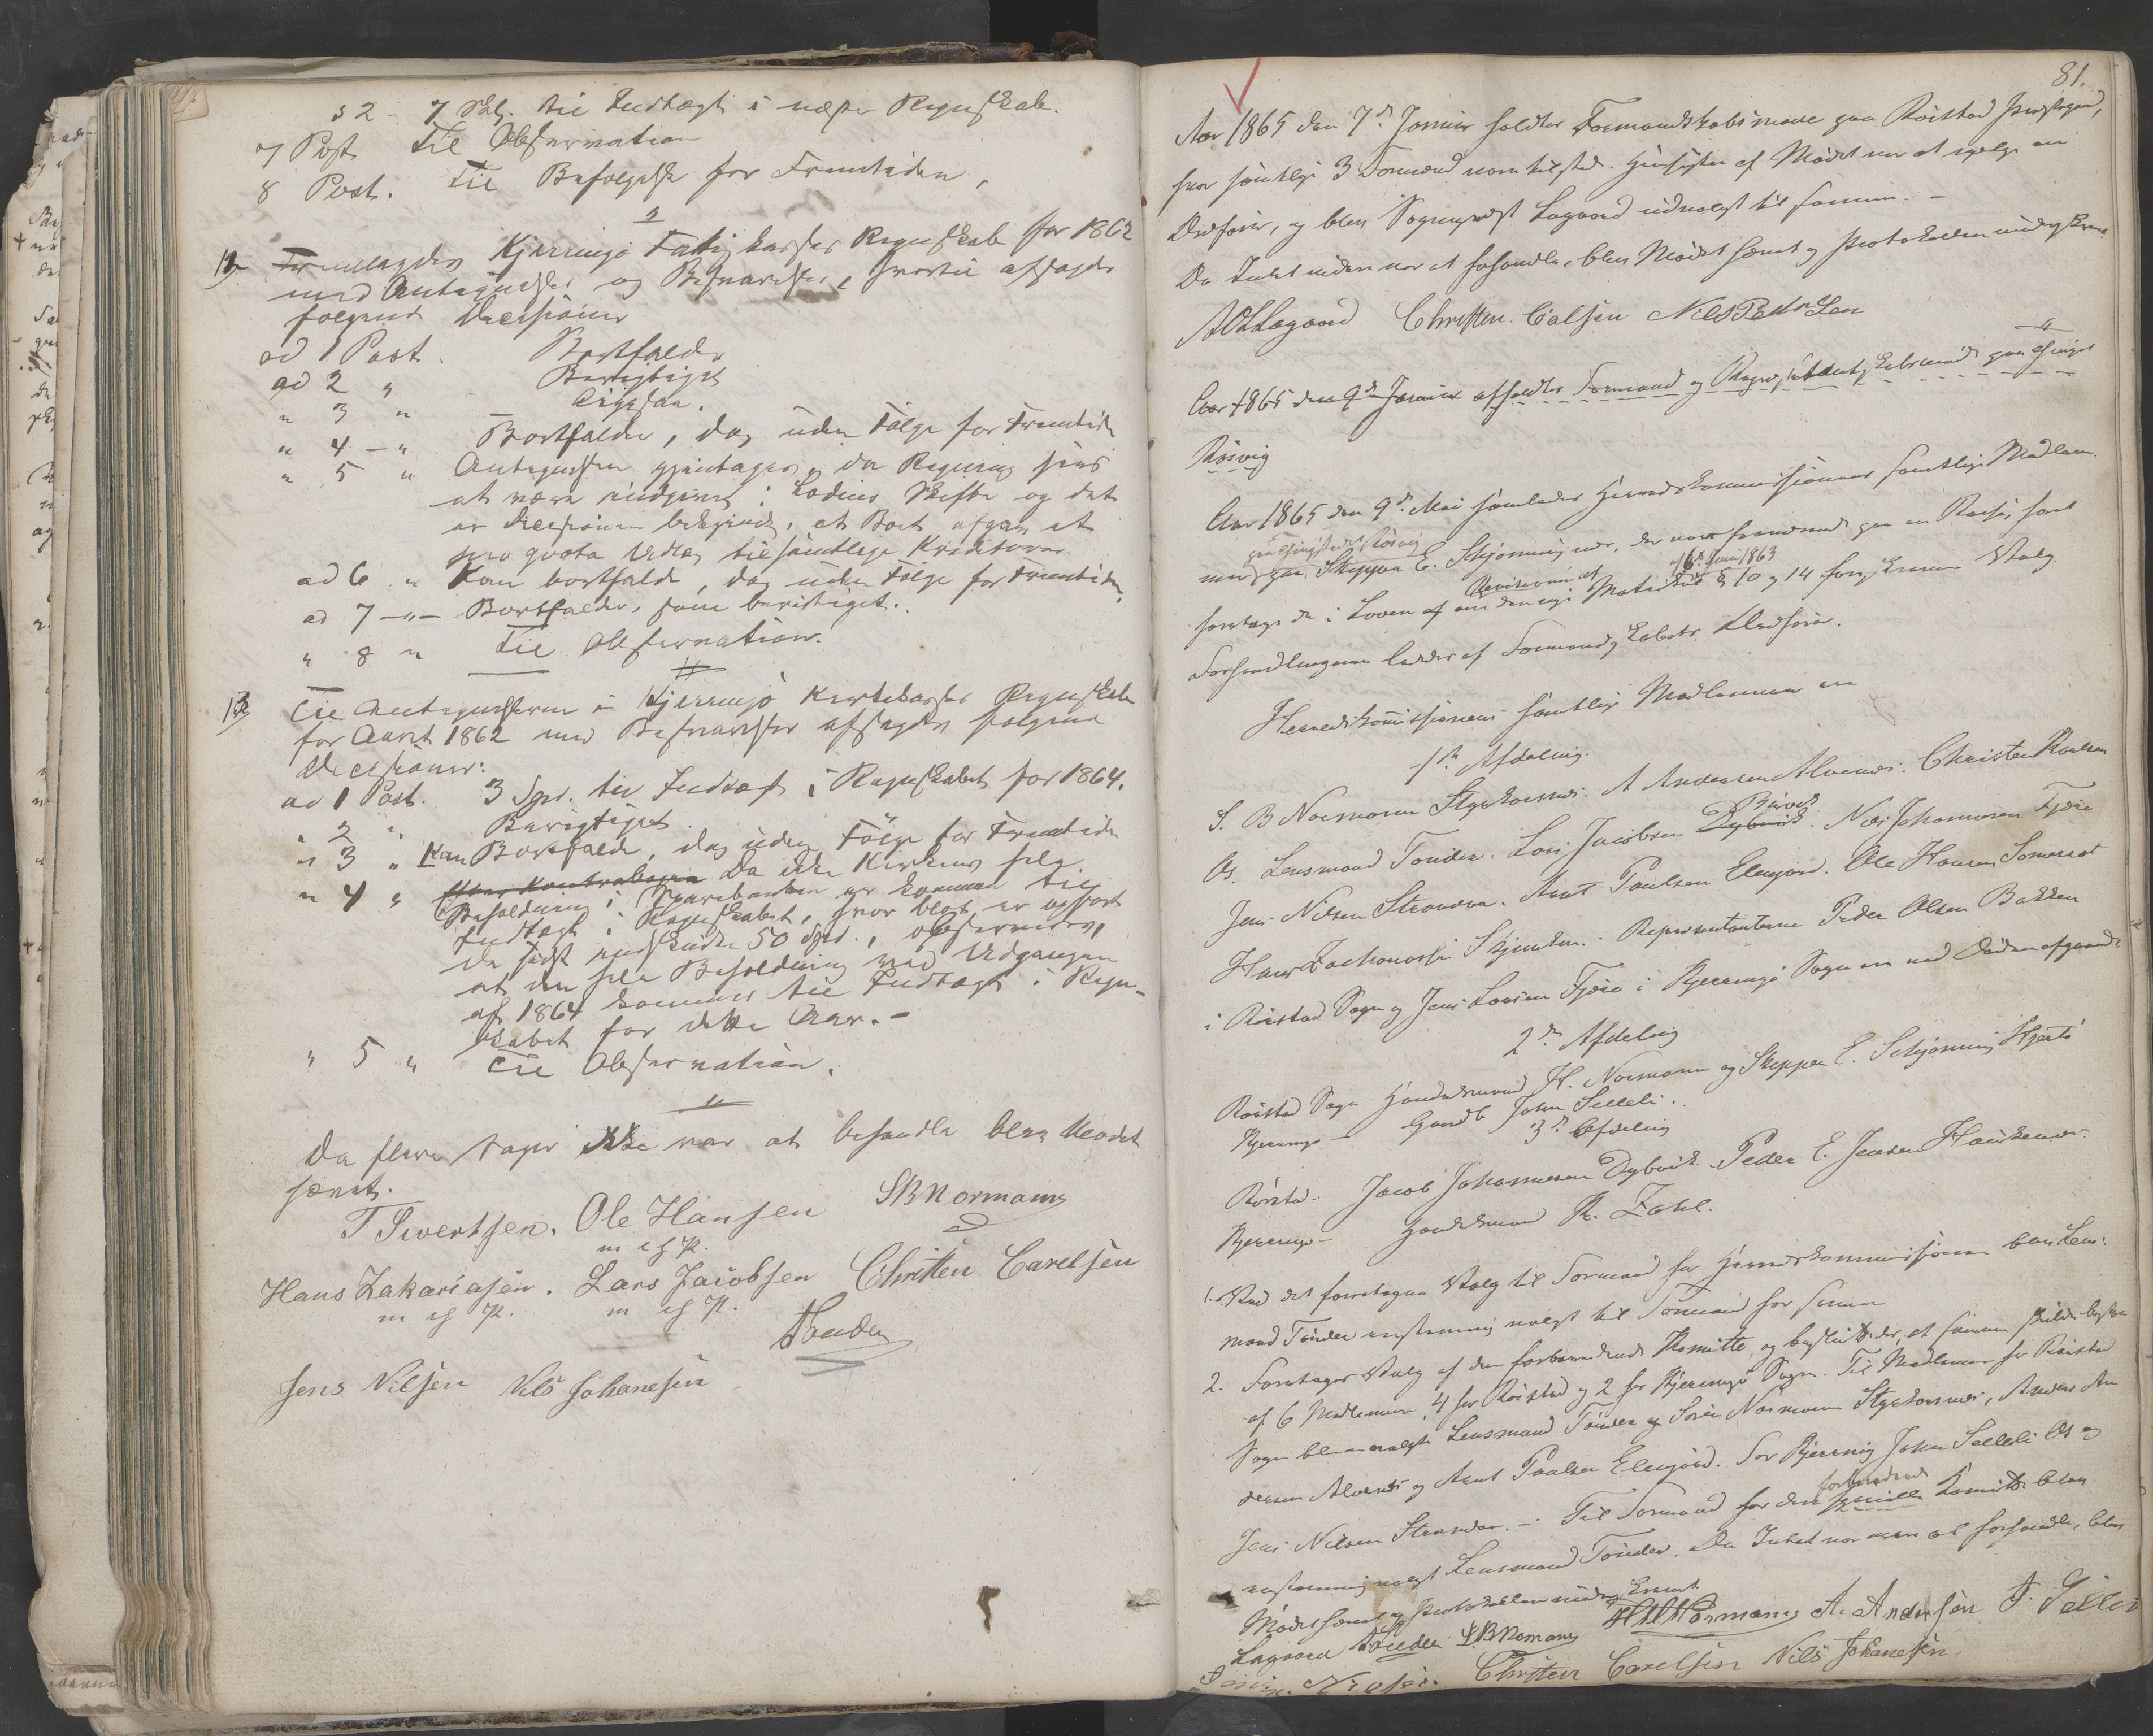 52 - 7 Sk. til Indtægt i næste Regnskab.
7 Post Til Observation
8 Post. Til Befølgelse for Fremtiden,
11, Fremlagdes Kjerringø Fattigkasses Regnskab for 1862
med Antegnelser og Besvarelser, hvortil afsagdes
følgende Decisioner
ad 1 Post. Bortfalder
ad 2 " Berigtiget
" 3 " Ligesaa.
" 4 - " Bortfalder, dog uden Følge for Fremtiden
" 5 " Antegnelsen gjentages, da
at være i Skifte og det
er Decisionen at Boet
pro qvota Udlæg til samtlige Kreditorer
ad 6 " Kan bortfalde, dog uden Følge for Fremtiden,
ad 7 -"- Bortfalder, som berigtiget.
" 8 " Til Observation.
12, Til Antegnelserne i Kjerringø Kirkekasses Regnskab
for Aaret 1862 med Besvarelser afsagdes følgende
Decisioner:
ad 1 Post. 3 Spd. til Indtægt i Regnskabet for 1864.
" 2 " Berigtiget
" 3 " Kan Bortfalde, dog uden Følge for Fremtiden
" 4 " Da ikke Kirkens hele
Beholdning i Sparebanken er kommen til
Indtægt i Regnskabet, hvor blot er opført
de sidst indskudte 50 Spd., observeres,
at den hele Beholdning ved Udgangen
af 1864 kommer til Indtægt i Regn-
skabet for dette Aar. -
" 5 " Til Observation.
Da flere Sager ikke var at behandle blev Mødet
hævet.
T Sivertsen. Ole Hansen SB Normann
m e h P.
Hans Zakariasen. Lars Jacobsen Christen Carelsen
m e h P. m e h P.
Tønder
Jens Nilsen Nils Johanesen
81.
Aar 1865 den 7de Januar holdtes Formandskabsmøde paa Røistad Præstegaard,
hvor samtlige 3 Formænd vare tilstede. Hensigten af Mødet var at vælge en
Ordfører, og blev Sogneprest Lagaard udvalgt til samme. -
Da Intet videre var at forhandle, blev Mødet hævet og Protokollen underskreven.
Lagaard Christen Calsen Nils Pedersen
Aar 1865 den 9de Januar afholdtes Formand og Repræsentantskabsmøde paa Thinget
Røsvig
Aar 1865 den 9de Mai samledes Herredskommissionens samtlige Medlem-
paa Thingstedet Røsvig
mer paa Skipper E. Schjønning nær, der var fraværende paa en Reise, for at
Revisionen af af 6te Juni 1863
foretage de i Loven af om den nye Matrikul § 10 og 14 foreskrevne Valg
Forhandlingerne lededes af Formandskabets Ordfører.
Herredskommissionens samtlige Medlemmer ere
1ste Afdeling.
S. B Normann Stgkosnes. A Andersen Alvenes. Christen Karelsen
Os. Lensmand Tønder. Lars Jacobsen Dybvik. Nils Johannesen Fjære
Jens Nilsen Strandaa. Arnt Paulsen Elvegjord. Ole Hansen Sommerset
Hans Zachariassen Skjeunken. Repræsentanterne Peder Olsen Bakken
i Røistad Sogn og Jens Larsen Fjære i Kjerringø Sogn ere ved Døden afgaaede
2den Afdeling
Røistad Sogn Handelsmand H. Normann og Skipper E. Schjønning Hjertø
Kjerringø - Gaardb John Selleli.
3die Afdeling
Røistad - Jacob Johannesen Dybvik. Peder E. Jensen Haukenes.
Kjerringø - Handelsmand K. Zahl.
1. Ved det foretagne Valg til Formand for Herredskommissionen blev Lens-
mand Tønder enstemmig valgt til Formand for samme
2. Foretages Valg af den forberedende Komitte, og besluttedes, at samme skulde bestaa
af 6 Medlemmer, 4 for Røistad og 2 for Kjerringø Sogn. Til Medlemmer for Røistad
Sogn bleve valgte Lensmand Tønder og Søren Normann Stgkosnes, Anders An
dersen Alvenes og Arnt Paulsen Elvegjord. For Kjerringø John Selleli Os og
forberedende
Jens Nilsen Strandaa. - Til Formand for den Komitte blev
enstemmig valgt Lensmand Tønder. Da Intet var mere at forhandle, blev
Mødet hævet og Protokollen underskrevet.
Lagaard Tønder SB Normann H Normann A. Andersen J. Selleli
Jens Nielsen. Christen Carelsen Nils Johanesen